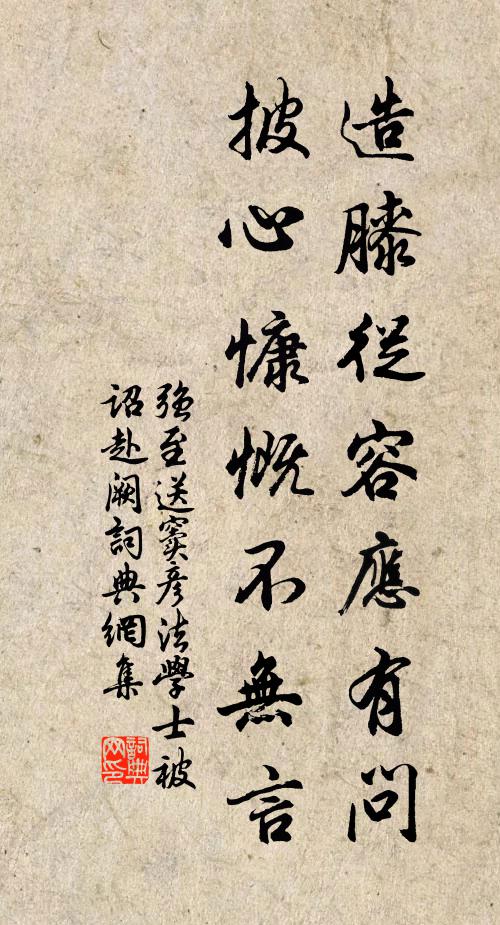 造膝從容應有問
披心慷慨不無言
強至送竇彥法學士被
詔赴闕詞典網集
詞典網印